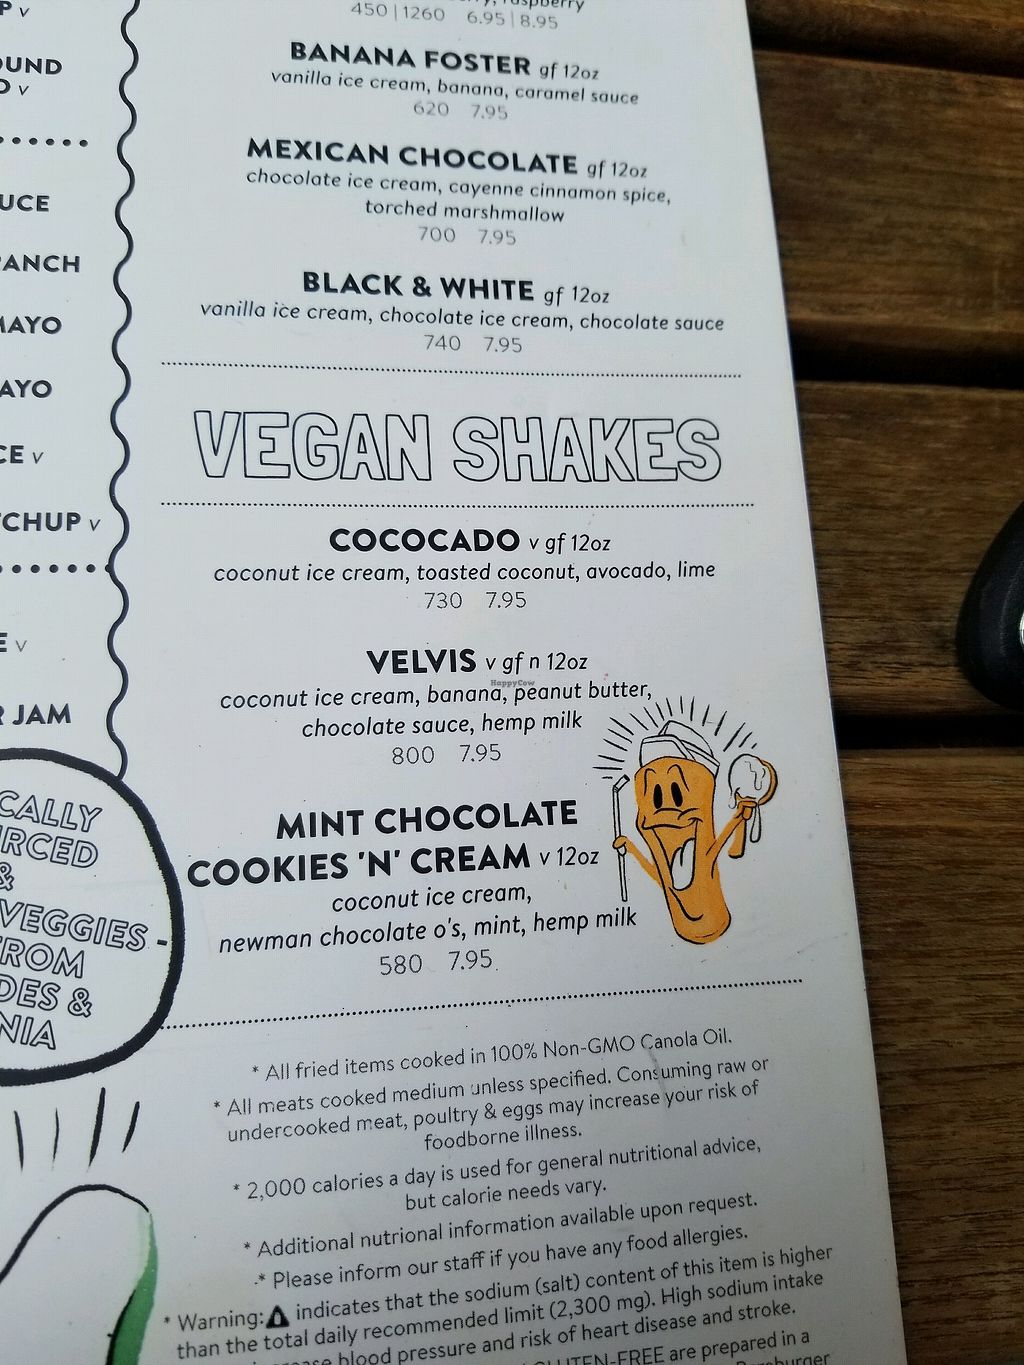 P v
OUND
O v
UCE
RANCH
MAYO
AYO
CE v
TCHUP v
E v
R JAM
CALLY
RCED
&
VEGGIES -
ROM
DES &
NIA
raspberry
450 | 1260 6.95 | 8.95
BANANA FOSTER gf 12oz
vanilla ice cream, banana, caramel sauce
620 7.95
MEXICAN CHOCOLATE gf 12oz
chocolate ice cream, cayenne cinnamon spice,
torched marshmallow
700 7.95
BLACK & WHITE gf 12oz
vanilla ice cream, chocolate ice cream, chocolate sauce
740 7.95
VEGAN SHAKES
COCOCADO v gf 12oz
coconut ice cream, toasted coconut, avocado, lime
730 7.95
VELVIS v gf n 12oz
HappyCow
coconut ice cream, banana, peanut butter,
chocolate sauce, hemp milk
800 7.95
MINT CHOCOLATE
COOKIES 'N' CREAM v 12oz
coconut ice cream,
newman chocolate o's, mint, hemp milk
580 7.95
* All fried items cooked in 100% Non-GMO Canola Oil.
* All meats cooked medium unless specified. Consuming raw or
undercooked meat, poultry & eggs may increase your risk of
foodborne illness.
* 2,000 calories a day is used for general nutritional advice,
but calorie needs vary.
* Additional nutrional information available upon request.
* Please inform our staff if you have any food allergies.
* Warning: indicates that the sodium (salt) content of this item is higher
than the total daily recommended limit (2,300 mg). High sodium intake
blood pressure and risk of heart disease and stroke.
GLUTEN-FREE are prepared in a